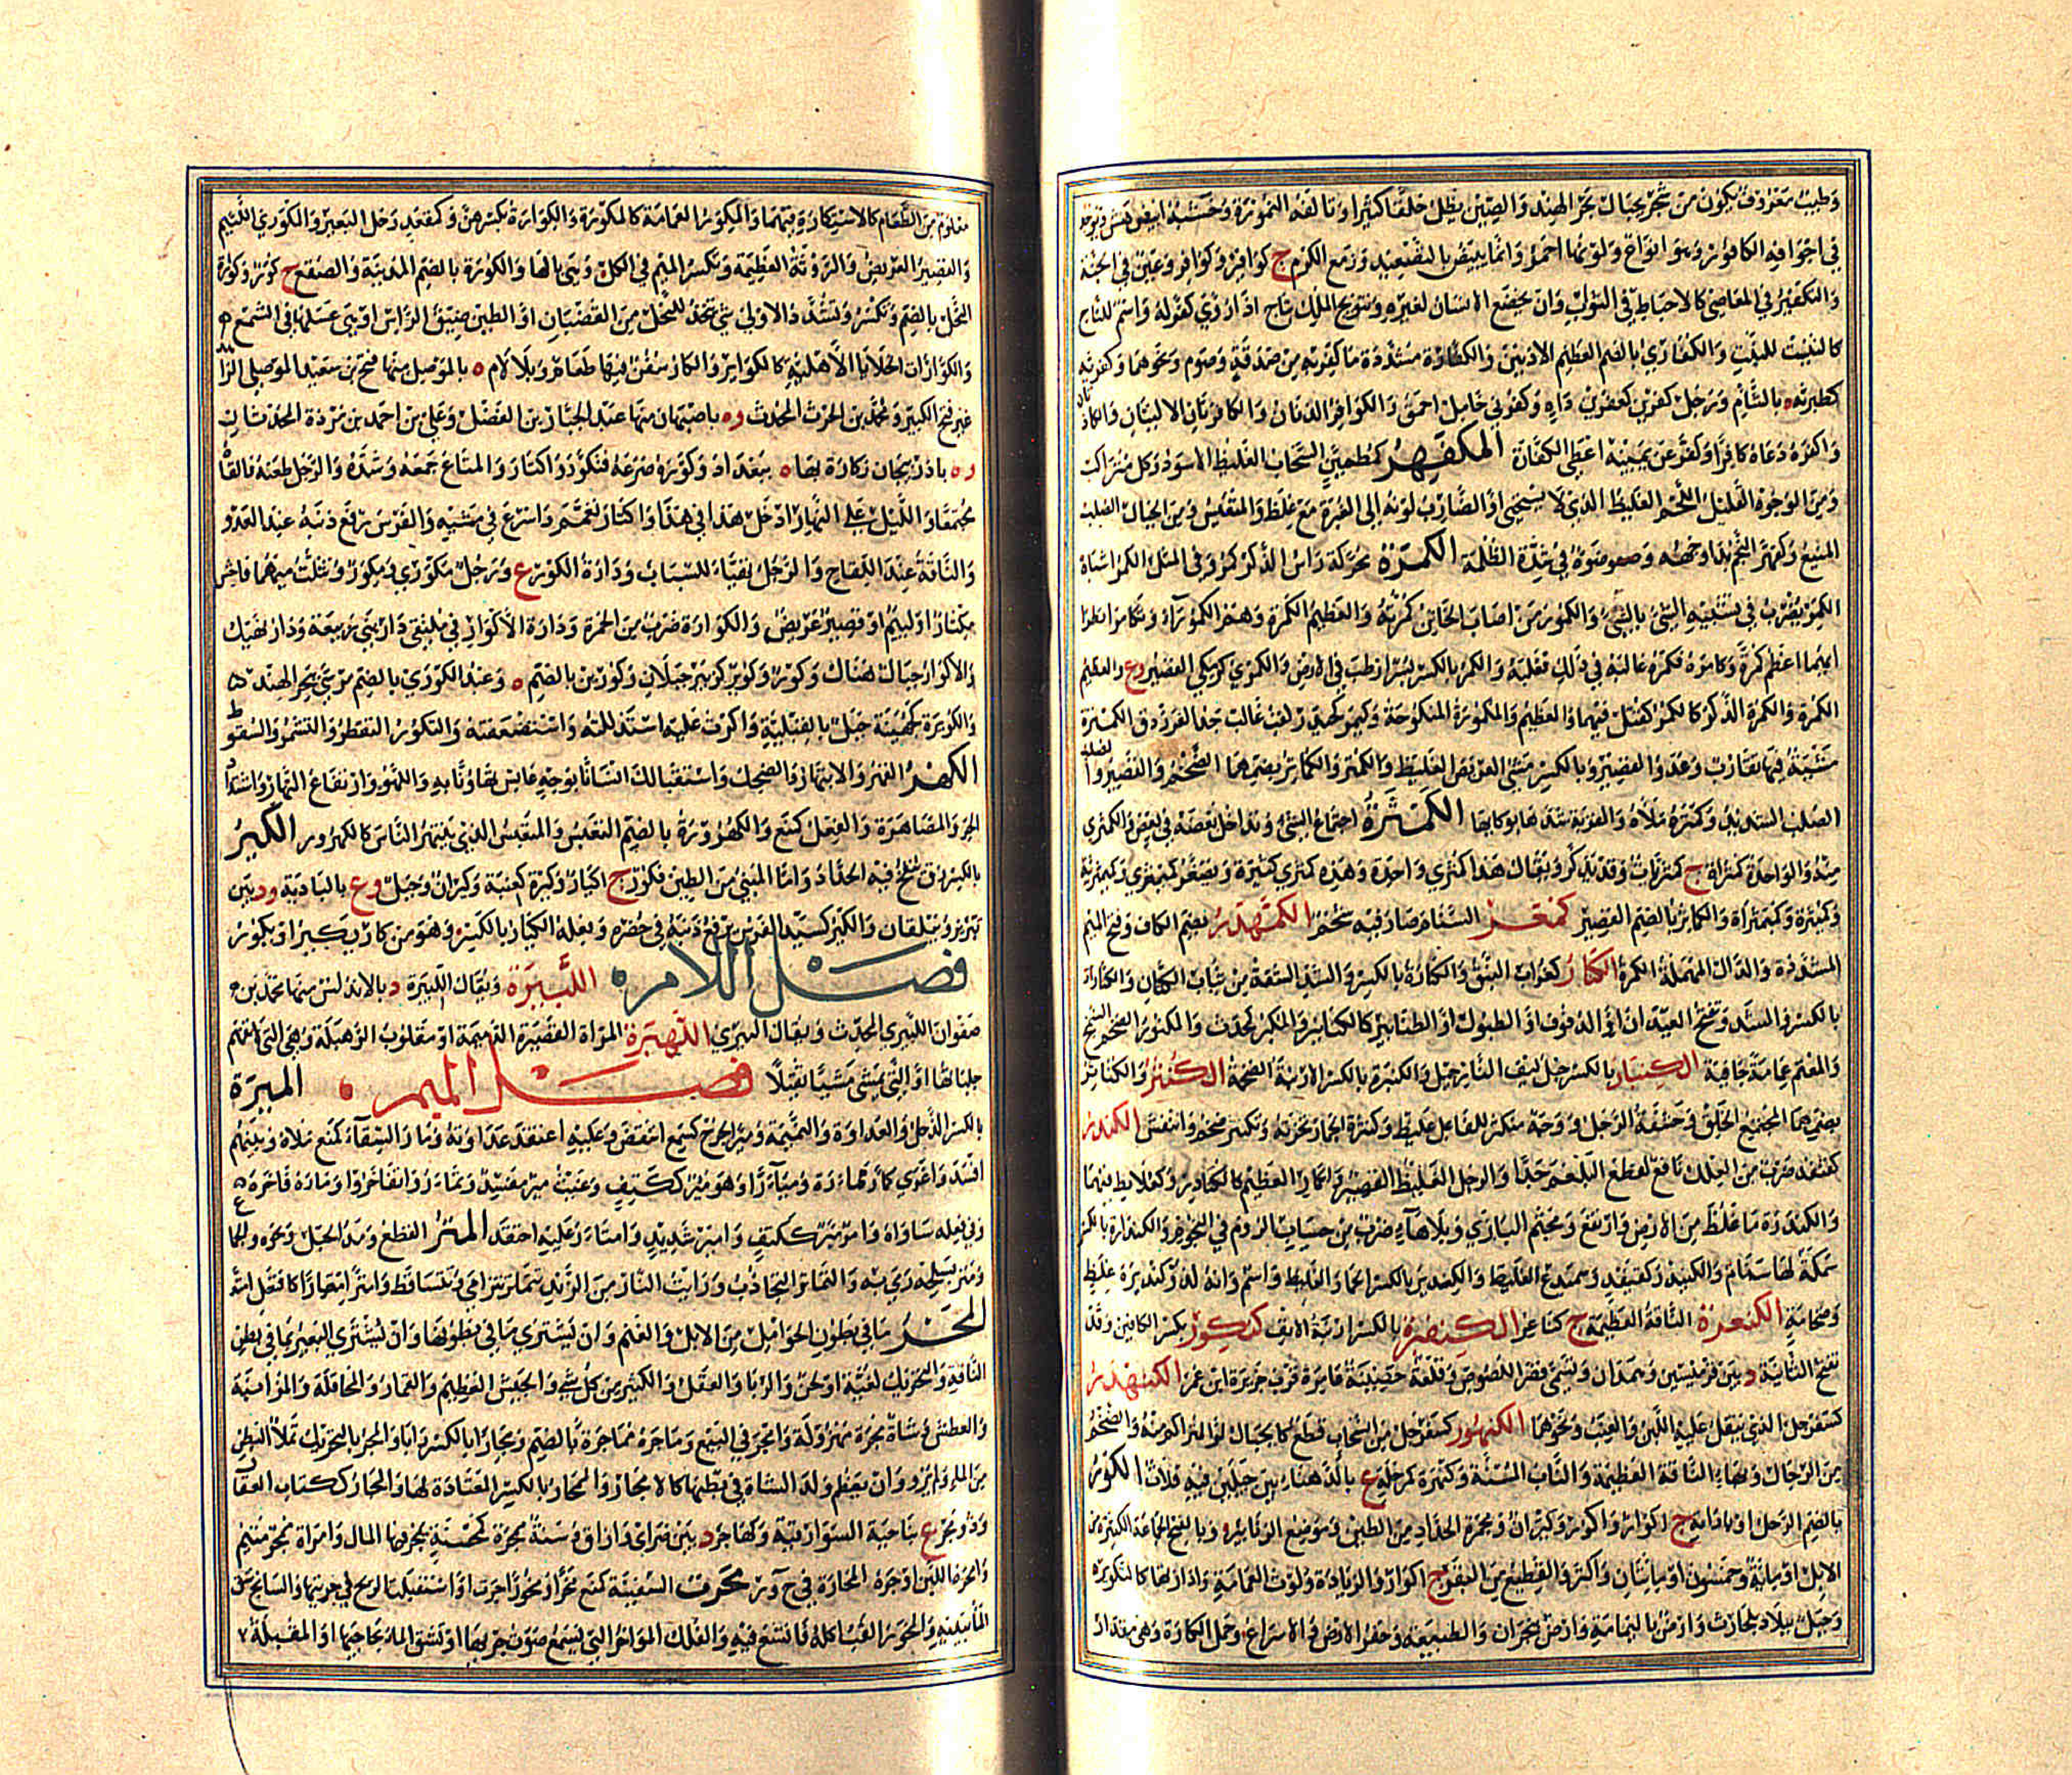 وَطِيبٌ مَعْرُوفٌ يَكُونُ مِنْ شَجَرٍ بِجِبَالِ بَحْرِ الهِنْدِ وَالصِّينِ يُظِلُّ خَلْقًا كَثِيرًا وَتَأْلَفُهُ النُّمُورَةُ وَخَشَبُهُ أَبْيَضُ هَشٌّ وَيُوجَدُ
فِي أَجْوَافِهِ الكَافُورُ وَهُوَ أَنْوَاعٌ وَلَوْنُهَا أَحْمَرُ وَإِنَّمَا يَبْيَضُّ بِالتَّصْعِيدِ وَزَمَعُ الكَرْمِ ج كَوَافِيرُ وَكَوَافِرُ وَعَيْنٌ فِي الجَنَّةِ
وَالتَّكْفِيرُ فِي المَعَاصِي كَالإِحْبَاطِ فِي الثَّوَابِ وَأَنْ يَخْضَعَ الإِنْسَانُ لِغَيْرِهِ وَتَتْوِيجُ المَلِكِ بِتَاجٍ إِذَا رُؤِيَ كُفِّرَ لَهُ وَاسْمٌ لِلتَّاجِ
كَالتَّنْبِيتِ لِلنَّبْتِ وَالكُفَارِيُّ بِالضَّمِّ العَظِيمُ الأُذُنَيْنِ وَالكَفَّارَةُ مُشَدَّدَةً مَا كُفِّرَ بِهِ مِنْ صَدَقَةٍ وَصَوْمٍ وَنَحْوِهِمَا وَكَفَرِيَّةُ
كَطَبَرِيَّة ه بِالشَّامِ وَرَجُلٌ كِفِرِّينٌ كَعِفِرِّينٍ دَاهٍ وَكَفَرْنَى خَامِلٌ أَحْمَقُ وَالكَوَافِرُ الدِّنَانُ وَالكَافِرَتَانِ الأَلْيَتَانِ وَالكَاذَتَانِ
وَأَكْفَرَهُ دَعَاهُ كَافِرًا وَكَفَّرَ عَنْ يَمِينِهِ أَعْطَى الكَفَّارَةَ المُكْفَهِرُّ كَمُطْمَئِنٍّ السَّحَابُ الغَلِيظُ الأَسْوَدُ وَكُلُّ مُتَرَاكِبٍ
وَمِنَ الوُجُوهِ القَلِيلُ اللَّحْمِ الغَلِيظُ الَّذِي لَا يَسْتَحْيِي أَوِ الضَّارِبُ لَوْنُهُ إِلَى الغُبْرَةِ مَعَ غِلَظٍ وَالمُتَعَبِّسُ وَمِنَ الجِبَالِ الصُّلْبُ
المَنِيعُ وَاكْفَهَرَّ النَّجْمُ بَدَا وَجْهُهُ وَضَوْءُهُ فِي شِدَّةِ الظُّلْمَةِ الكَمَرَةُ مُحَرَّكَةً رَأْسُ الذَّكَرِ ج كَمَرٌ وَفِي المَثَلِ الكَمَرُ أَشْبَاهُ
الكَمَرِ يُضْرَبُ فِي تَشْبِيهِ الشَّيْءِ بِالشَّيْءِ وَالمَكْمُورُ مَنْ أَصَابَ الخَاتِنُ كَمَرَتَهُ وَالعَظِيمُ الكَمَرَةِ وَهُمُ المَكْمُورَاءُ وَتَكَامَرَا نَظَرَا
أَيُّهُمَا أَعْظَمُ كَمَرَةً وَكَامَرَهُ فَكَمَرَهُ غَالَبَهُ فِي ذَلِكَ فَغَلَبَهُ وَالكِمْرُ بِالكَسْرِ بُسْرٌ أَرْطَبَ فِي الأَرْضِ وَالكِمِرَّى كَزِمِكَّى القَصِيرُ وع وَالعَظِيمُ
الكَمَرَةِ وَالكُمُرَّةُ الذَّكَرُ كَالكُمُرِّ كَعُتُلٍّ فِيهِمَا وَالعَظِيمُ وَالمَكْمُورَةُ المَنْكُوحَةُ وَكَيْمَرٌ كَحَيْدَرٍ لَقَبُ غَالِبٍ جَدِّ الفَرَزْدَقِ الكَمْتَرَةُ
مِشْيَةٌ فِيهَا تَقَارُبٌ وَعَدْوُ القَصِيرِ وَبِالكَسْرِ مَشْيُ العَرِيضِ الغَلِيظِ وَالكُمْتُرُ وَالكُمَاتِرُ بِضَمِّهِمَا الضَّخْمُ وَالقَصِيرُ وَالغَلِيظُ
الصُّلْبُ الشَّدِيدُ وَكَمْتَرَهُ مَلَأَهُ وَالقِرْبَةَ شَدَّهَا بِوِكَائِهَا الكَمْثَرَةُ اجْتِمَاعُ الشَّيْءِ وَتَدَاخُلُ بَعْضِهِ فِي بَعْضٍ وَالكُمَّثْرَى
مِنْهُ وَالوَاحِدَةُ كُمَّثْرَاةٌ ج كُمَّثْرَيَاتٌ وَقَدْ يُذَكَّرُ وَيُقَالُ هَذَا كُمَّثْرَى وَاحِدَةٌ وَهَذِهِ كُمَّثْرَى كَثِيرَةٌ وَيُصَغَّرُ كُمَيْمِثْرَى وَكُمَيْمِثْرِيَةٌ
وَكُمَيْثِرَةٌ وَكُمَيْمِثْرَاةٌ وَالكُمَاثِرُ بِالضَّمِّ القَصِيرُ كَمْعَرَ السَّنَامُ صَارَ فِيهِ شَحْمٌ الكُمَّهْدَرُ بِضَمِّ الكَافِ وَفَتْحِ المِيمِ
المُشَدَّدَةِ وَالدَّالِ المُهْمَلَةِ الكَمَرَةُ الكُنَارُ كَغُرَابٍ النَّبِقُ وَالكِنَّارَةُ بِالكَسْرِ وَالشَّدِّ الشُّقَّةُ مِنْ ثِيَابِ الكَتَّانِ وَالكِنَّارَاتُ
بِالكَسْرِ وَالشَّدِّ وَتُفْتَحُ العِيدَانُ أَوِ الدُّفُوفُ أَوِ الطُّبُولُ أَوِ الطَّنَابِيرُ كَالكَنَانِيرِ وَالمُكَنِّرُ كَمُحَدِّثٍ وَالمُكَنْوِرُ الضَّخْمُ السَّمِجُ
وَالمُعْتَمُّ عِمَامَةً جَافِيَةً الكِنْبَارُ بِالكَسْرِ حَبْلُ لِيفِ النَّارَجِيلِ وَالكِنْبِرَةُ بِالكَسْرِ الأَرْنَبَةُ الضَّخْمَةُ الكُنْثُرُ وَالكُنَاثِرُ
بِضَمِّهِمَا المُجْتَمِعُ الخَلْقِ وَحَشَفَةُ الرَّجُلِ وَوَجْهٌ مُكَنْثِرٌ لِلفَاعِلِ غَلِيظٌ وَكَنْثَرَةُ الحِمَارِ نُخْرَتُهُ وَتَكَنْثَرَ ضَخُمَ وَانْتَفَشَ الكُنْدُرُ
كَقُنْفُذٍ ضَرْبٌ مِنَ العِلْكِ نَافِعٌ لِقَطْعِ البَلْغَمِ جِدًّا وَالرَّجُلُ الغَلِيظُ القَصِيرُ وَالحِمَارُ العَظِيمُ كَالكُنَادِرِ وَكَعُلَابِطٍ فِيهِمَا
وَالكَنْدَرَةُ مَا غَلُظَ مِنَ الأَرْضِ وَارْتَفَعَ وَمَجْثِمُ البَازِي وَبِلَا هَاءٍ ضَرْبٌ مِنْ حِسَابِ الرُّومِ فِي النُّجُومِ وَالكِنْدَارَةُ بِالكَسْرِ
سَمَكَةٌ لَهَا سَنَامٌ وَالكُنَيْدِرُ كَقُنَيْفِذٍ وَسَمَيْدَعٍ الغَلِيظُ وَالكِنْدِيرُ بِالكَسْرِ الحِمَارُ الغَلِيظُ وَاسْمٌ وَإِنَّهُ لَذُو كِنْدِيرَةٍ غِلَظٍ
وَضَخَامَةٍ الكَنْعَرَةُ النَّاقَةُ العَظِيمَةُ ج كَنَاعِرُ الكِنْصِرَةُ بِالكَسْرِ أَرْنَبَةُ الأَنْفِ كِنْكِوَرُ بِكَسْرِ الكَافَيْنِ وَقَدْ
تُفْتَحُ الثَّانِيَةُ د بَيْنَ قَرْمِيسِينَ وَهَمَذَانَ وَتُسَمَّى قَصْرَ اللُّصُوصِ وَقَلْعَةٌ حَصِينَةٌ عَامِرَةٌ قُرْبَ جَزِيرَةِ ابْنِ عُمَرَ الكَنَهْدَرُ
كَسَفَرْجَلٍ الَّذِي يُنْقَلُ عَلَيْهِ اللَّبَنُ وَالعِنَبُ وَنَحْوُهُمَا الكَنَهْوَرُ كَسَفَرْجَلٍ مِنَ السَّحَابِ قِطَعٌ كَالجِبَالِ أَوِ المُتَرَاكِمُ مِنْهُ وَالضَّخْمُ
مِنَ الرِّجَالِ وَبِهَاءٍ النَّاقَةُ العَظِيمَةُ وَالنَّابُ المُسِنَّةُ وَكَنْهَرَةُ كَمَرْحَلَةٍ ع بِالدَّهْنَاءِ بَيْنَ جَبَلَيْنِ فِيهِ قِلَاتٌ الكُورُ
بِالضَّمِّ الرَّحْلُ أَوْ بِأَدَاتِهِ ج أَكْوَارٌ وَأَكْوُرٌ وَكِيرَانٌ وَمِجْمَرَةُ الحَدَّادِ مِنَ الطِّينِ وَمَوْضِعُ الزَّنَابِيرِ وَبِالفَتْحِ الجَمَاعَةُ الكَثِيرَةُ مِنَ
الإِبِلِ أَوْ مِائَةٌ وَخَمْسُونَ أَوْ مِائَتَانِ وَأَكْثَرُ وَالقَطِيعُ مِنَ البَقَرِ ج أَكْوَارٌ وَالزِّيَادَةُ وَلَوْثُ العِمَامَةِ وَإِدَارَتُهَا كَالتَّكْوِيرِ
وَجَبَلٌ بِبِلَادِ بَلْحَارِثِ وَأَرْضٌ بِاليَمَامَةِ وَأَرْضٌ بِنَجْرَانَ وَالطَّبِيعَةُ وَحَفْرُ الأَرْضِ وَالإِسْرَاعُ وَحَمْلُ الكَارَةِ وَهِيَ مِقْدَارٌ
مَعْلُومٌ مِنَ الطَّعَامِ كَالاسْتِكَارَةِ فِيهِمَا وَالمِكْوَرُ العِمَامَةُ كَالمِكْوَرَةِ وَالكِوَارَةِ بِكَسْرِهِنَّ وَكَمَقْعَدٍ رَحْلُ البَعِيرِ وَالمَكْوَرَّى اللَّئِيمُ
وَالقَصِيرُ العَرِيضُ وَالرَّوْثَةُ العَظِيمَةُ وَتُكْسَرُ المِيمُ فِي الكُلِّ وَهِيَ بِالهَاءِ وَالكُورَةُ بِالضَّمِّ المَدِينَةُ وَالصُّقْعُ ج كُوَرٌ وَكُوَارَةُ
النَّحْلِ بِالضَّمِّ وَتُكْسَرُ وَتُشَدَّدُ الأُولَى شَيْءٌ يُتَّخَذُ لِلنَّحْلِ مِنَ القُضْبَانِ أَوِ الطِّينِ ضَيِّقُ الرَّأْسِ أَوْ هِيَ عَسَلُهَا فِي الشَّمَعِ
وَالكُوَّارَاتُ الخَلَايَا الأَهْلِيَّةُ كَالكَوَائِرِ وَالكَارُ سُفُنٌ فِيهَا طَعَامٌ وَبِلَا لَامٍ ه بِالمَوْصِلِ مِنْهَا فَتْحُ بْنُ سَعِيدٍ المَوْصِلِيُّ الزَّاهِدُ
غَيْرُ فَتْحٍ الكَبِيرِ وَمُحَمَّدُ بْنُ الحَرْثِ المُحَدِّثُ وه بِأَصْبَهَانَ مِنْهَا عَبْدُ الجَبَّارِ بْنُ الفَضْلِ وَعَلِيُّ بْنُ أَحْمَدَ بْنِ مَرْدَةَ المُحَدِّثَانِ
وه بِأَذْرَبِيجَانَ وَكَارَةُ بِهَاءٍ ه بِبَغْدَادَ وَكَوَّرَهُ صَرَعَهُ فَتَكَوَّرَ وَاكْتَارَ وَالمَتَاعَ جَمَعَهُ وَشَدَّهُ وَالرَّجُلَ طَعَنَهُ فَأَلْقَاهُ
مُجْتَمِعًا وَاللَّيْلَ عَلَى النَّهَارِ أَدْخَلَ هَذَا فِي هَذَا وَاكْتَارَ تَعَمَّمَ وَأَسْرَعَ فِي مَشْيِهِ وَالفَرَسُ رَفَعَ ذَنَبَهُ عِنْدَ العَدْوِ
وَالنَّاقَةُ عِنْدَ اللِّقَاحِ وَالرَّجُلُ تَهَيَّأَ لِلسِّبَابِ وَدَارَةُ الكَوْرِ ع وَرَجُلٌ مُكَوْرَى وَمُكَوَّرٌ وَتُثَلَّثُ مِيمُهُمَا فَاحِشٌ
مِكْثَارٌ أَوْ لَئِيمٌ أَوْ قَصِيرٌ عَرِيضٌ وَالكِوَارَةُ ضَرْبٌ مِنَ الخِمْرَةِ وَدَارَةُ الأَكْوَارِ فِي مُلْتَقَى دَارِ بَنِي رَبِيعَةَ وَدَارِ نَهِيكٍ
وَالأَكْوَارُ جِبَالٌ هُنَاكَ وَكَوْرٌ وَكُوَيْرٌ كَزُبَيْرٍ جَبَلَانِ وَكُورِينُ بِالضَّمِّ ه وَعَبْدُ الكُورِيُّ بِالضَّمِّ مَرْسَى بِبَحْرِ الهِنْدِ
وَالكُوَيْرَةُ كَجُهَيْنَةَ جَبَلٌ بِالقَبَلِيَّةِ وَأَكَرْتُ عَلَيْهِ اسْتَذْلَلْتُهُ وَاسْتَضْعَفْتُهُ وَالتَّكَوُّرُ التَّقَطُّرُ وَالتَّشَمُّرُ وَالسُّقُوطُ
الكَهْرُ القَهْرُ وَالانْتِهَارُ وَالضَّحِكُ وَاسْتِقْبَالُكَ إِنْسَانًا بِوَجْهٍ عَابِسٍ تَهَاوُنًا بِهِ وَاللَّهْوُ وَارْتِفَاعُ النَّهَارِ وَاشْتِدَادُ
الحَرِّ وَالمُصَاهَرَةُ وَالفِعْلُ كَمَنَعَ وَالكُهْرُورَةُ بِالضَّمِّ التَّعَبُّسُ وَالمُتَعَبِّسُ الَّذِي يَنْتَهِرُ النَّاسَ كَالكُهْرُورِ الكِيرُ
بِالكَسْرِ زِقٌّ يَنْفُخُ فِيهِ الحَدَّادُ وَأَمَّا المَبْنِيُّ مِنَ الطِّينِ فَكُورٌ ج أَكْيَارٌ وَكِيَرَةٌ كَعِنَبَةٍ وَكِيرَانٌ وَجَبَلٌ وع بِالبَادِيَةِ ود بَيْنَ
تَبْرِيزَ وَبَيْلَقَانَ وَالكَيِّرُ كَسَيِّدٍ الفَرَسُ يَرْفَعُ ذَنَبَهُ فِي حُضْرِهِ وَفِعْلُهُ الكِيَارُ بِالكَسْرِ وَهُوَ مِنْ كَارَ يَكِيرُ أَوْ يَكُورُ
فَصْلُ اللام اللَّبِيرَةُ وَيُقَالُ الَلْبِيرَةُ د بِالأَنْدَلُسِ مِنْهَا مُحَمَّدُ بْنُ
صَفْوَانَ اللَّبِيرِيُّ المُحَدِّثُ وَيُقَالُ البِيرِيُّ اللَّهْبَرَةُ المَرْأَةُ القَصِيرَةُ الدَّمِيمَةُ أَوْ مَقْلُوبُ الرَّهْبَلَةِ وَهِيَ الَّتِي لَا تُفْهَمُ
جَلَبَاتُهَا أَوِ الَّتِي تَمْشِي مَشْيًا ثَقِيلًا فَصْلُ المِيم المِئْرَةُ
بِالكَسْرِ الذَّحْلُ وَالعَدَاوَةُ وَالنَّمِيمَةُ وَمَئِرَ الجُرْحُ كَسَمِعَ انْتَقَضَ وَعَلَيْهِ اعْتَقَدَ عَدَاوَتَهُ وَمَأَرَ السِّقَاءَ كَمَنَعَ مَلَأَهُ وَبَيْنَهُمْ
أَفْسَدَ وَأَغْرَى كَمَاءَرَ مُمَاءَرَةً وَمِئَارًا وَهُوَ مَئِرٌ كَكَتِفٍ وَعِنَبٍ مُفْسِدٌ وَتَمَاءَرُوا تَفَاخَرُوا وَمَاءَرَهُ فَاخَرَهُ
وَفِي فِعْلِهِ سَاوَاهُ وَأَمْرٌ مَئِرٌ كَكَتِفٍ وَأَمِيرٍ شَدِيدٌ وَامْتَأَرَ عَلَيْهِ احْتَقَدَ المَتْرُ القَطْعُ وَمَدُّ الحَبْلِ وَنَحْوِهِ وَالجِمَاعُ
وَمَتَرَ بِسَلْحِهِ رَمَى بِهِ وَالتَّمَاتُرُ التَّجَاذُبُ وَرَأَيْتُ النَّارَ مِنَ الزَّنْدِ تَتَمَاتَرُ تَتَرَامَى وَتَتَسَاقَطُ وَامَّتَرَ امِّتَارًا كَافْتَعَلَ امْتَدَّ
المَجْرُ مَا فِي بُطُونِ الحَوَامِلِ مِنَ الإِبِلِ وَالغَنَمِ وَأَنْ يُشْتَرَى مَا فِي بُطُونِهَا وَأَنْ يُشْتَرَى البَعِيرُ بِمَا فِي بَطْنِ
النَّاقَةِ وَالتَّحْرِيكُ لُغَيَّةٌ أَوْ لَحْنٌ وَالرِّبَا وَالعَقْلُ وَالكَثِيرُ مِنْ كُلِّ شَيْءٍ وَالجَيْشُ العَظِيمُ وَالقِمَارُ وَالمُحَاقَلَةُ وَالمُزَابَنَةُ
وَالعَطَشُ وَشَاةٌ مَجْرَةٌ مَهْزُولَةٌ وَأَمْجَرَ فِي البَيْعِ وَمَاجَرَهُ مُمَاجَرَةً بِالضَّمِّ وَمِجَارًا بِالكَسْرِ رَابَاهُ وَالمَجَرُ بِالتَّحْرِيكِ تَمَلُّؤُ البَطْنِ
مِنَ المَاءِ وَلَمْ يَرْوَ وَأَنْ يَعْظُمَ وَلَدُ الشَّاةِ فِي بَطْنِهَا كَالإِمْجَارِ وَالمِمْجَارُ بِالكَسْرِ المُعْتَادَةُ لَهَا وَالمِجَارُ كَكِتَابٍ العِقَالُ
وَذُو مَجْرٍ ع بِنَاحِيَةِ السَّوَارِقِيَّةِ وَكَهَاجَرَ د بَيْنَ صَرَايَ وَآزَاقَ وَسَنَةٌ مُمْجِرَةٌ كَمُحْسِنَةٍ يُمْجِرُ فِيهَا المَالُ وَامْرَأَةٌ مُمْجِرٌ مُتْئِمٌ
وَأَمْجَرَهُ اللَّبَنَ أَوْجَرَهُ المَحَارَةُ فِي ح و ر مَخَرَتِ السَّفِينَةُ كَمَنَعَ مَخْرًا وَمُخُورًا جَرَتْ أَوِ اسْتَقْبَلَتِ الرِّيحَ فِي جِرْيَتِهَا وَالسَّابِحُ شَقَّ
المَاءَ بِيَدَيْهِ وَالمِحْوَرُ القَبَّ أَكَلَهُ فَاتَّسَعَ فِيهِ وَالفُلْكُ المَوَاخِرُ الَّتِي يُسْمَعُ صَوْتُ جَرْيِهَا أَوْ تَشُقُّ المَاءَ بِجَآجِئِهَا أَوِ المُقْبِلَةُ